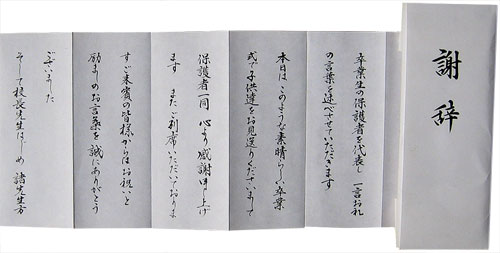 謝辞
卒業生の保護者を代表し 一言お礼
の言葉を述べさせていただきます
本日は このような素晴らしい卒業
式で子供達をお見送りくださいまして
保護者一同 心より感謝申し上げ
ます またご列席いただいておりま
すご来賓の皆様からはお祝いと
励ましのお言葉を誠にありがとう
ございました
そして校長先生はじめ 諸先生方